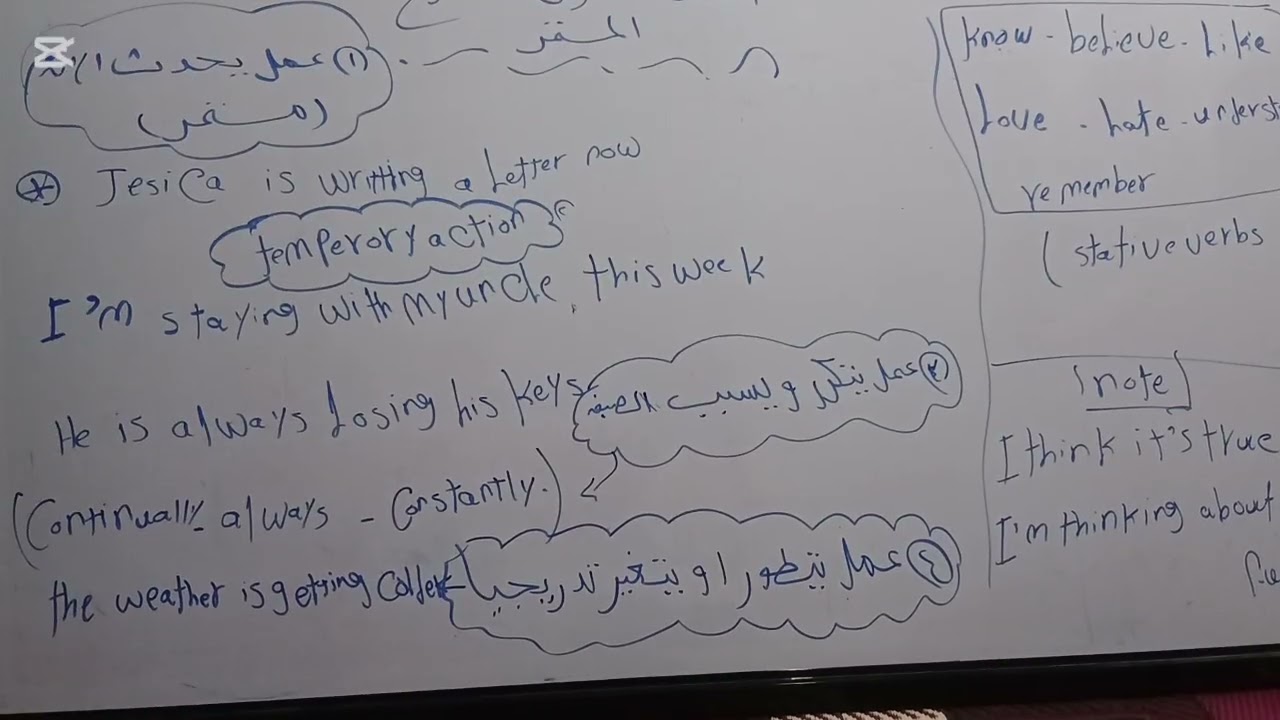 (١) عمل يحدث الآن
(مستمر)
* Jesica is writting a letter now
temperory action
I'm staying with my uncle, this week
(٣) عمل يتكرر ويسبب
He is always losing his keys
(Continually - always - constantly.)
(٤) عمل يتطور او يتغير تدريجيا
the weather is getting colder
know - believe - Like
Love - hate - underst
remember
(stative verbs
(note)
I think it's true
I'm thinking about